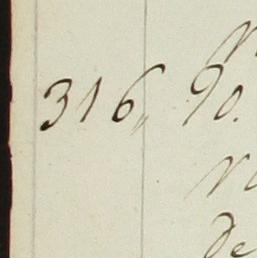 316„ 90.
de